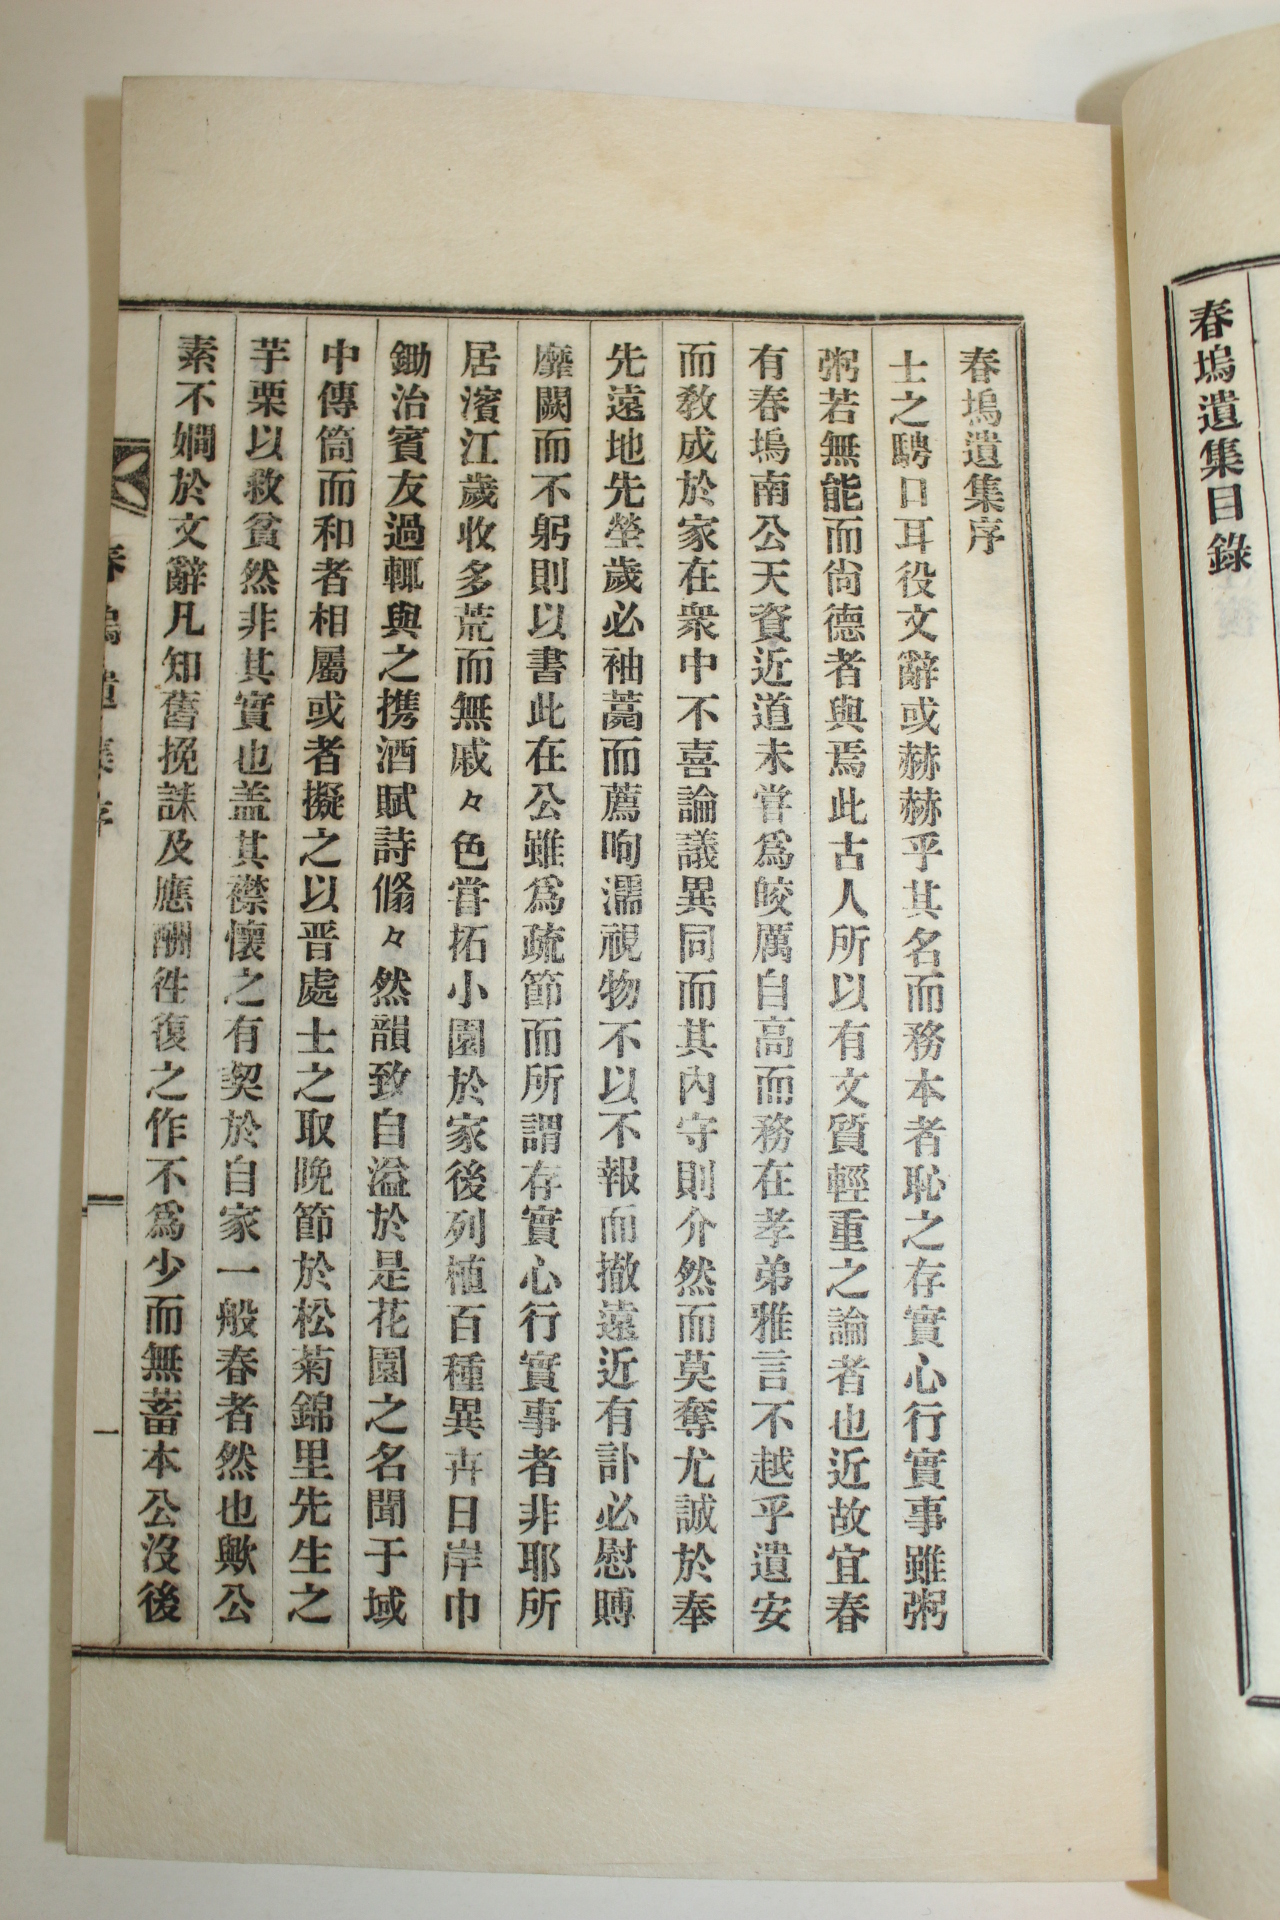 春塢遺集目錄
春塢遺集序
士之騁口耳役文辭或赫赫乎其名而務本者恥之存實心行實事雖粥
粥若無能而尙德者與焉此古人所以有文質輕重之論者也近故宜春
有春塢南公天資近道未嘗爲皎厲自高而務在孝弟雅言不越乎遺安
而敎成於家在衆中不喜論議異同而其內守則介然而莫奪尤誠於奉
先遠地先塋歲必袖藁而薦呴濡視物不以不報而撤遠近有訃必慰賻
靡闕而不躬則以書此在公雖爲疏節而所謂存實心行實事者非耶所
居濱江歲收多荒而無戚々色嘗拓小園於家後列植百種異卉日岸巾
鋤治賓友過輒與之携酒賦詩翛々然韻致自溢於是花園之名聞于域
中傳筒而和者相屬或者擬之以晋處士之取晩節於松菊錦里先生之
芋栗以救貧然非其實也盖其襟懷之有契於自家一般春者然也歟公
素不嫺於文辭凡知舊挽誄及應酬徃復之作不爲少而無蓄本公沒後
春塢遺集序
一